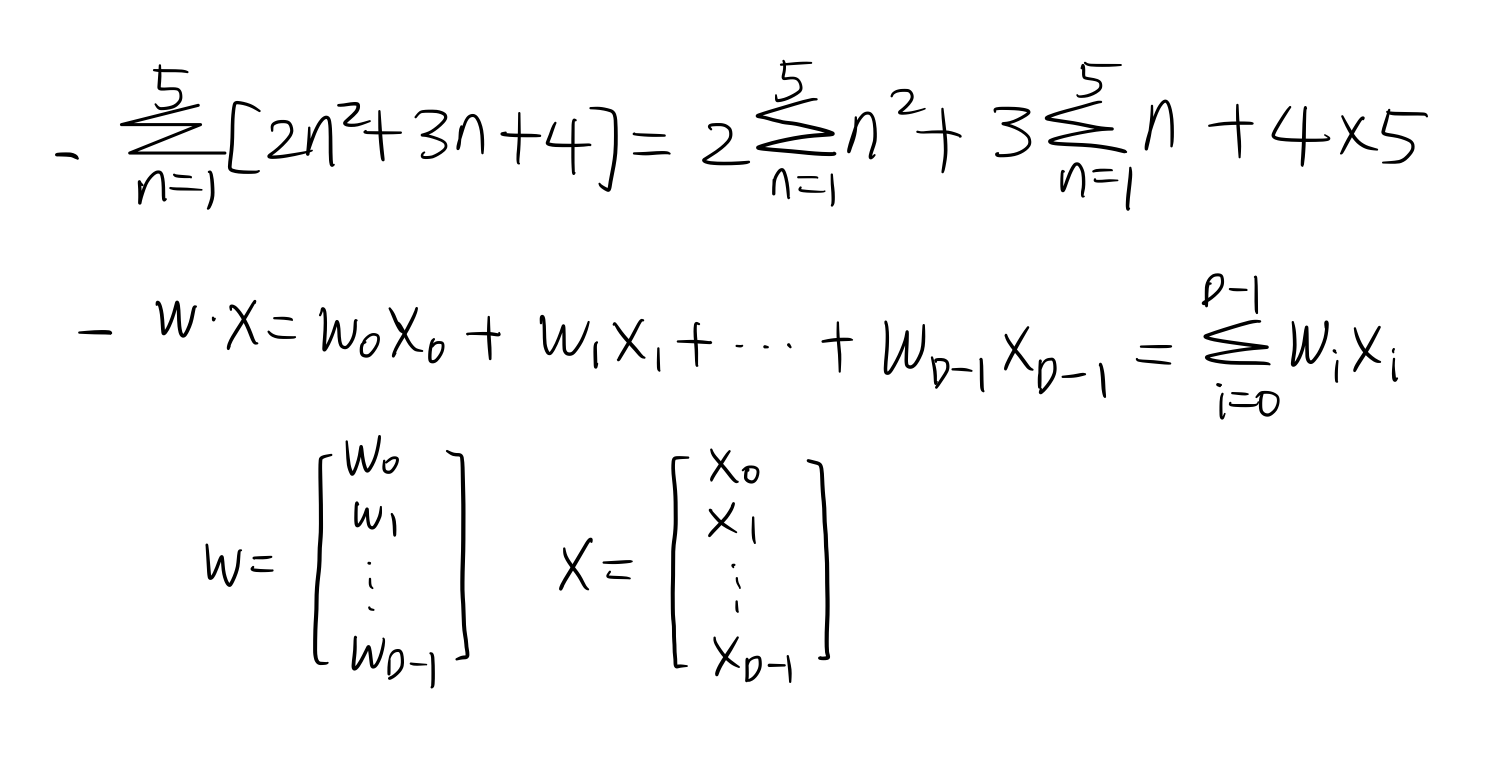 - \sum_{n=1}^{5} [2n^2+3n+4] = 2 \sum_{n=1}^{5} n^2 + 3 \sum_{n=1}^{5} n + 4 × 5
- w·x = w_0 x_0 + w_1 x_1 + ··· + w_{D-1} x_{D-1} = \sum_{i=0}^{D-1} w_i x_i
w = \begin{bmatrix} w_0 \\ w_1 \\ \vdots \\ w_{D-1} \end{bmatrix} x = \begin{bmatrix} x_0 \\ x_1 \\ \vdots \\ x_{D-1} \end{bmatrix}